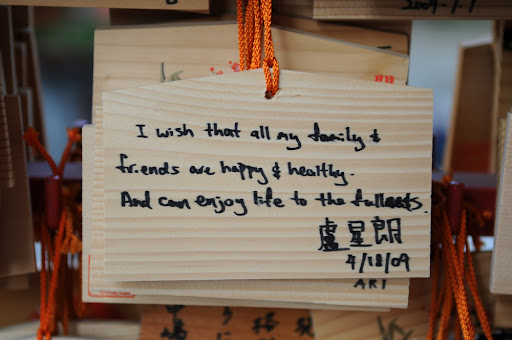 2009.1.1
I wish that all my family &
friends are happy & healthy.
And can enjoy life to the fullests.
盧星朗
4/18/09
ARI